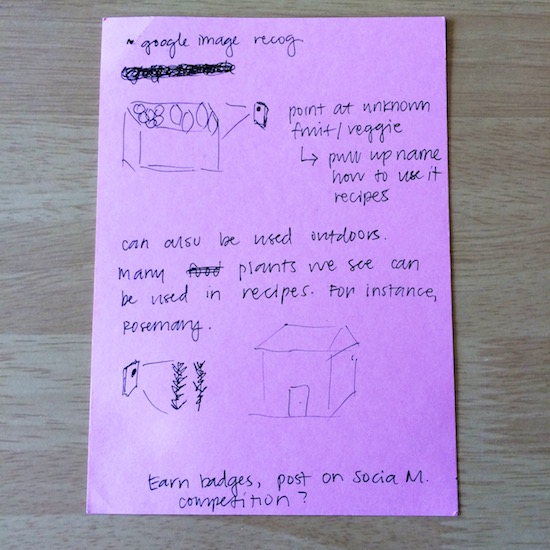 ~ google image recog.
point at unknown
fruit/veggie
↳ pull up name
how to use it
recipes
can also be used outdoors.
many food plants we see can
be used in recipes. For instance,
rosemary.
Earn badges, post on Socia M.
competition?